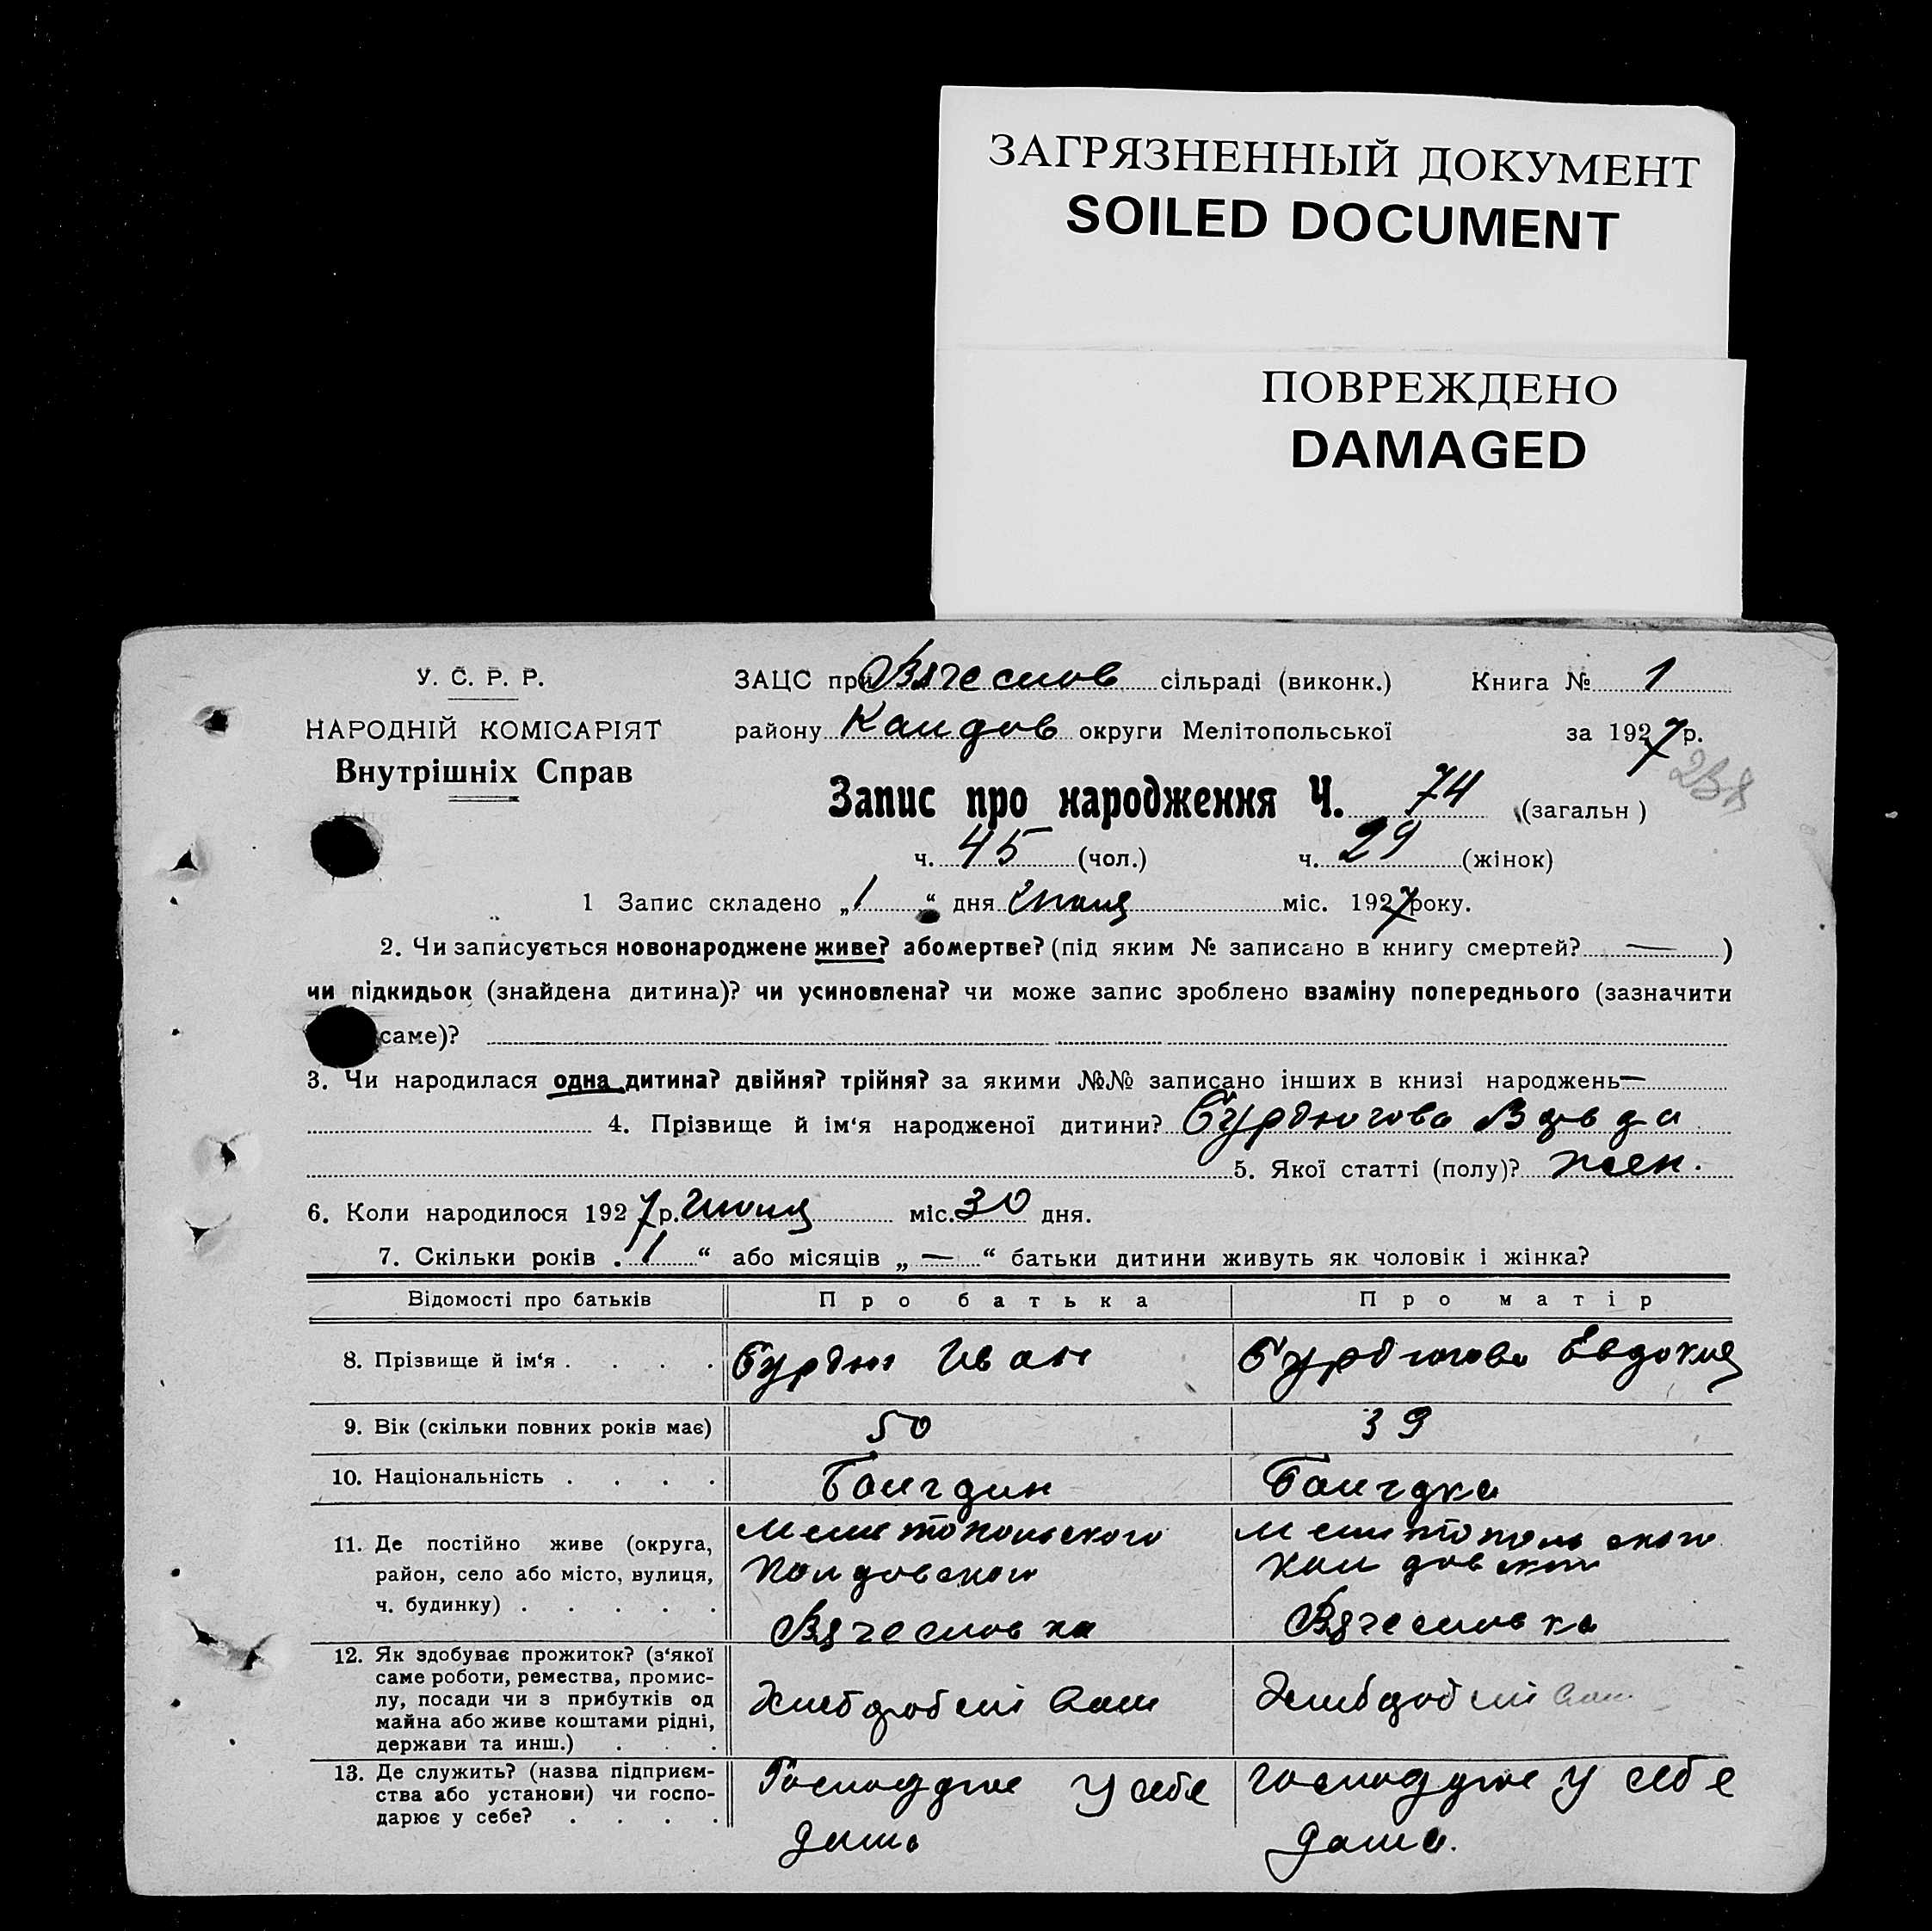 ЗАГРЯЗНЕННЫЙ ДОКУМЕНТ
SOILED DOCUMENT
ПОВРЕЖДЕНО
DAMAGED
У. С. Р. Р.
НАРОДНІЙ КОМІСАРІЯТ
Внутрішніх Справ
ЗАЦС при Вячеслов сільраді (виконк.) Книга № 1
району Колдов округи Мелітопольської за 1927 р.
Запис про народження Ч. 74 (загальн)
ч. 45 (чол.) ч. 29 (жінок)
1 Запис складено „1“ дня міс. 1927 року.
2. Чи записується новонароджене живе? або мертве? (під яким № записано в книгу смертей? — )
чи підкидьок (знайдена дитина)? чи усиновлена? чи може запис зроблено взаміну попереднього (зазначити
саме)?
3. Чи народилася одна дитина? двійня? трійня? за якими №№ записано інших в книзі народжень —
4. Прізвище й ім‘я народженої дитини? Бурдюгова
5. Якої статті (полу)? жен.
6. Коли народилося 1927 р. Июня міс. 30 дня.
7. Скільки років „1“ або місяців „—“ батьки дитини живуть як чоловік і жінка?
Відомості про батьків Про батька Про матір
8. Прізвище й ім‘я . . . . Бурдюг Иван Бурдюгова Евдокия
9. Вік (скільки повних років має) 50 39
10. Національність . . . . Болгарин Болгарка
11. Де постійно живе (округа, район, село або місто, вулиця, ч. будинку) . . . . .
Мелитопольского Мелитопольского
Колдовского Колдовского
Вячеславка Вячеславка
12. Як здобуває прожиток? (з‘якої саме роботи, ремества, промислу, посади чи з прибутків од майна або живе коштами рідні, держави та инш.) . . .
Хлебороб Хлебороб
13. Де служить? (назва підприємства або установи) чи господарює у себе? . . . .
у себе у себе
дома дома.